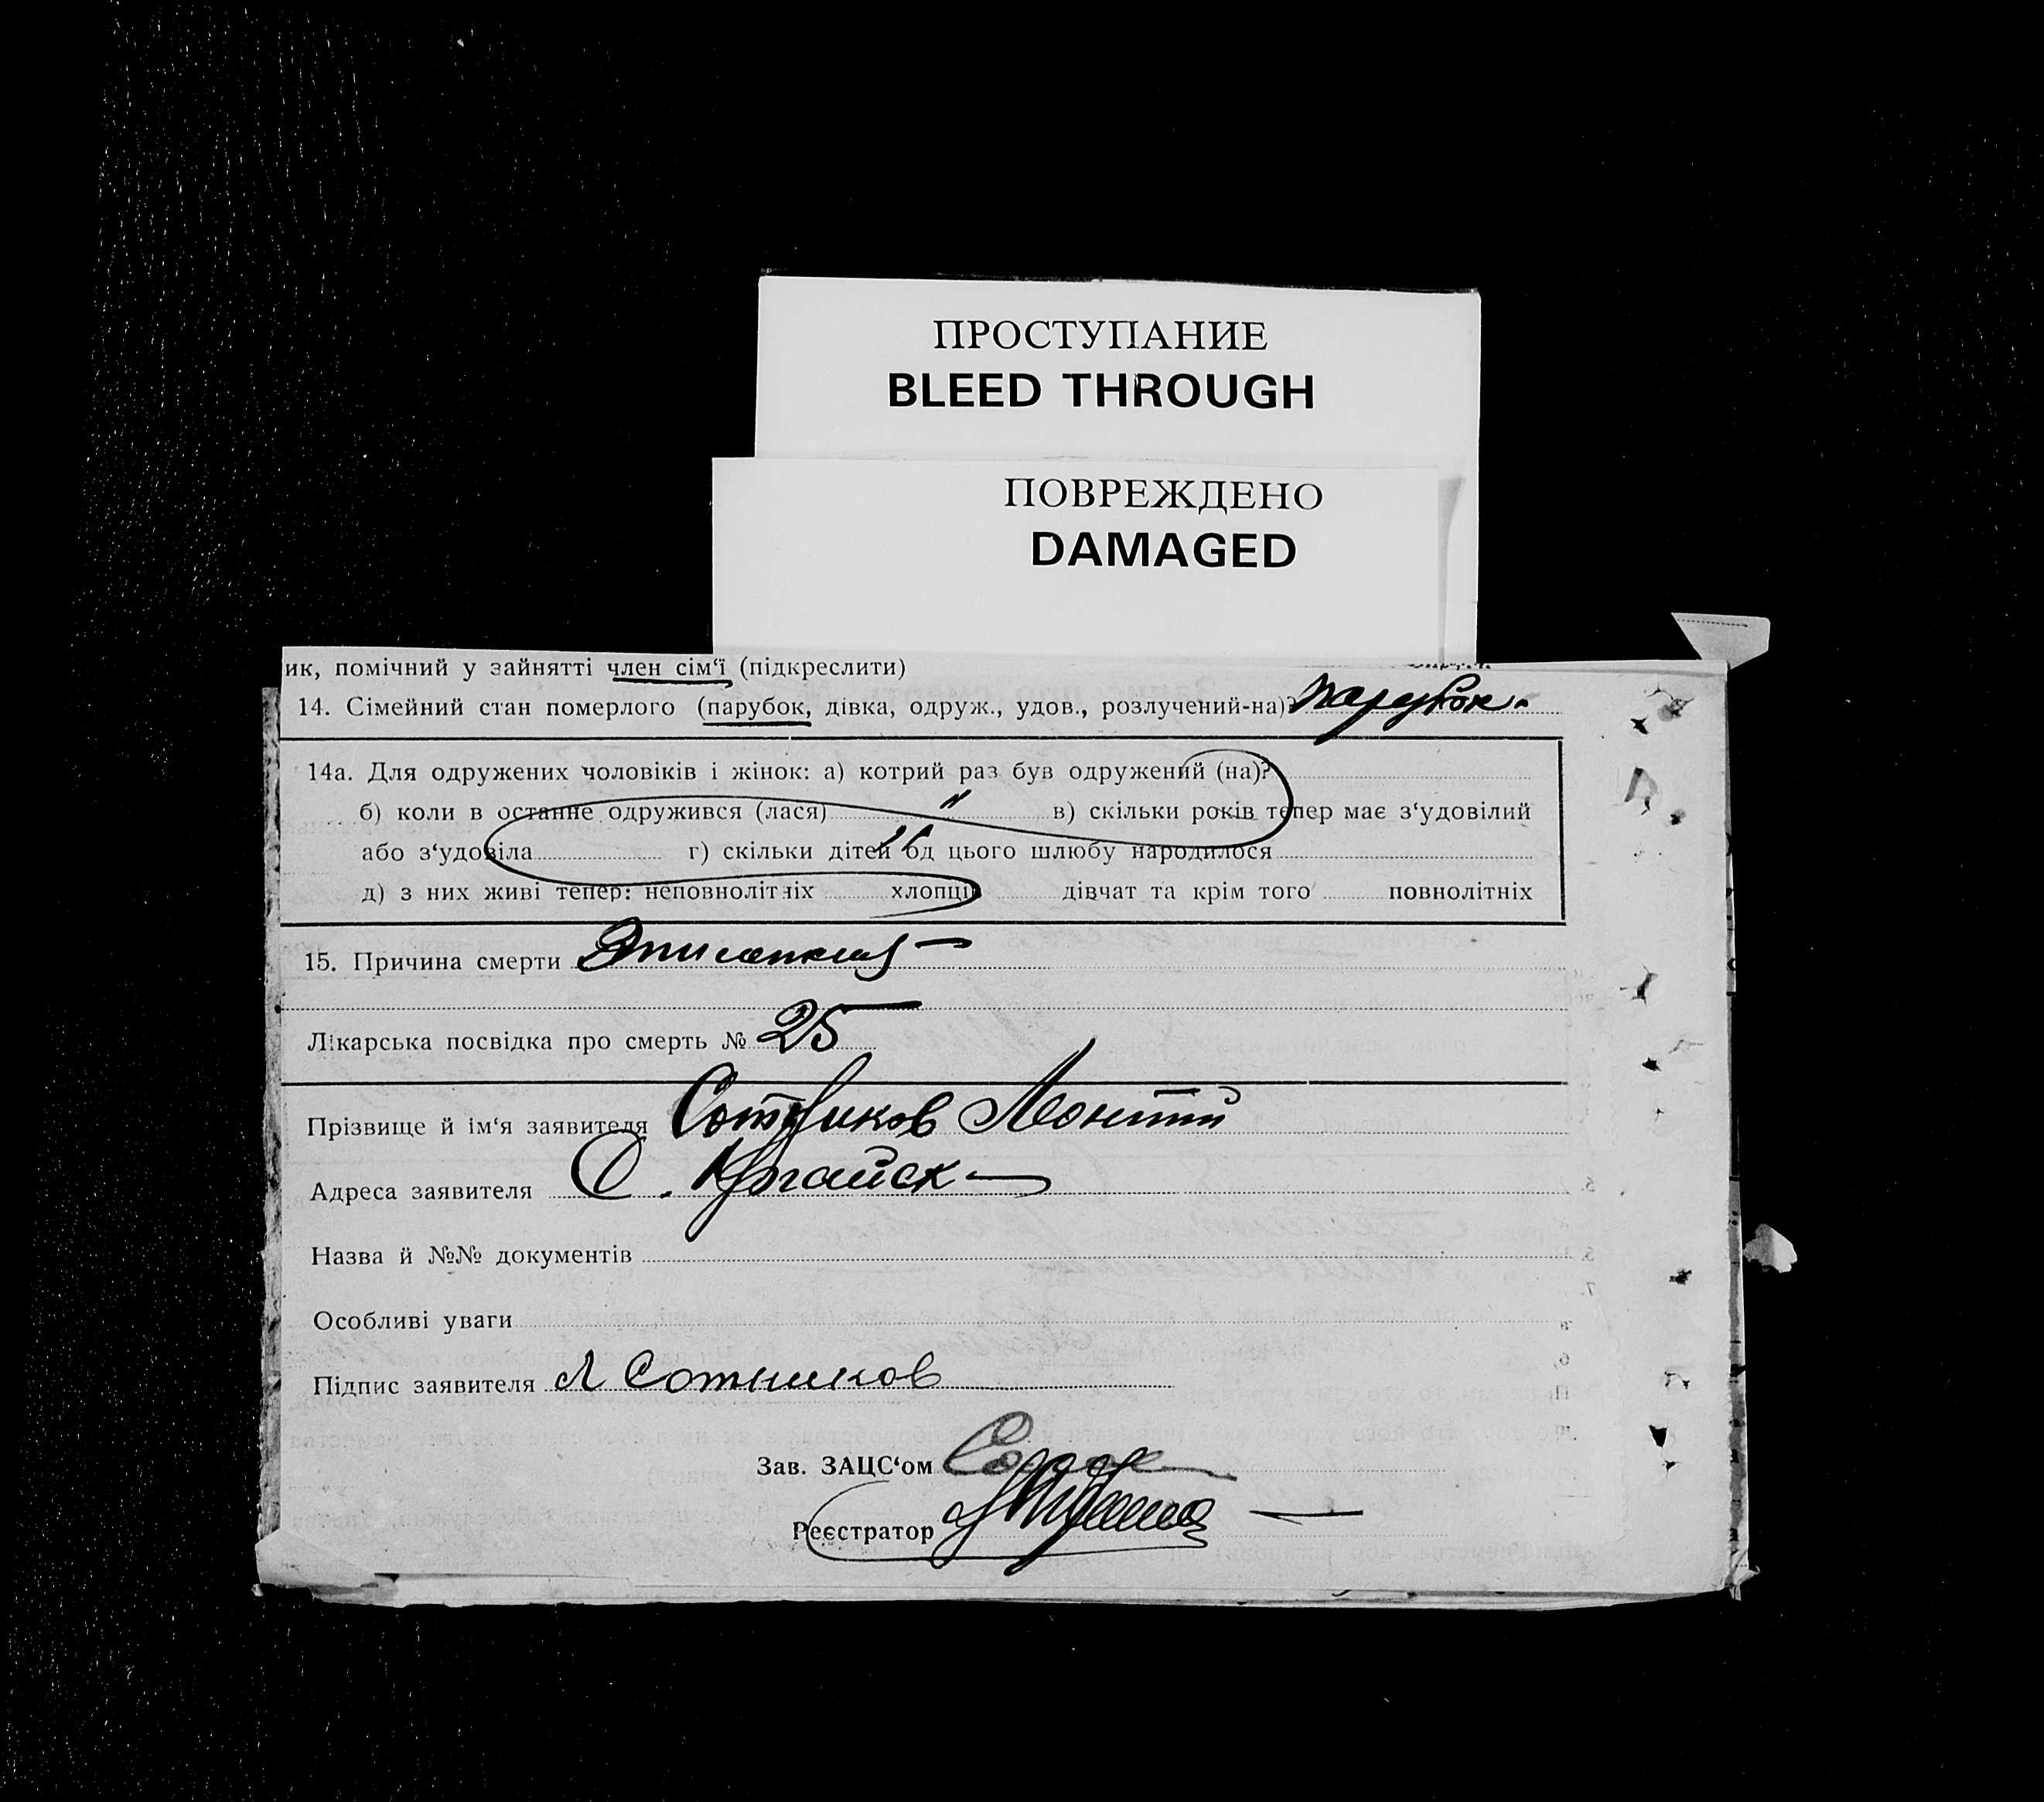 ПРОСТУПАНИЕ
BLEED THROUGH
ПОВРЕЖДЕНО
DAMAGED
ик, помічний у зайнятті член сім'ї (підкреслити)
14. Сімейний стан померлого (парубок, дівка, одруж., удов., розлучений-на)? парубок.
14а. Для одружених чоловіків і жінок: а) котрий раз був одружений (на)?
б) коли в останнє одружився (лася) " в) скільки років тепер має з'удовілий
або з'удовіла г) скільки дітей од цього шлюбу народилося
д) з них живі тепер: неповнолітніх хлопців дівчат та крім того повнолітніх
15. Причина смерти
Лікарська посвідка про смерть № 25
Прізвище й ім'я заявителя Сотников Леонтий
Адреса заявителя С.
Назва й №№ документів
Особливі уваги
Підпис заявителя Л Сотников
Зав. ЗАЦС'ом
Реєстратор